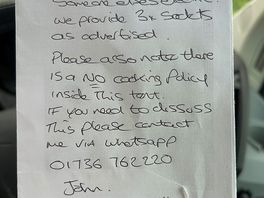 someone elses
we provide 3x sockets
as advertised.
Please also note there
is a NO cooking Policy
inside This tent.
IF you need to disscuss
This please contact
me via whatsapp
01736 762220
John.